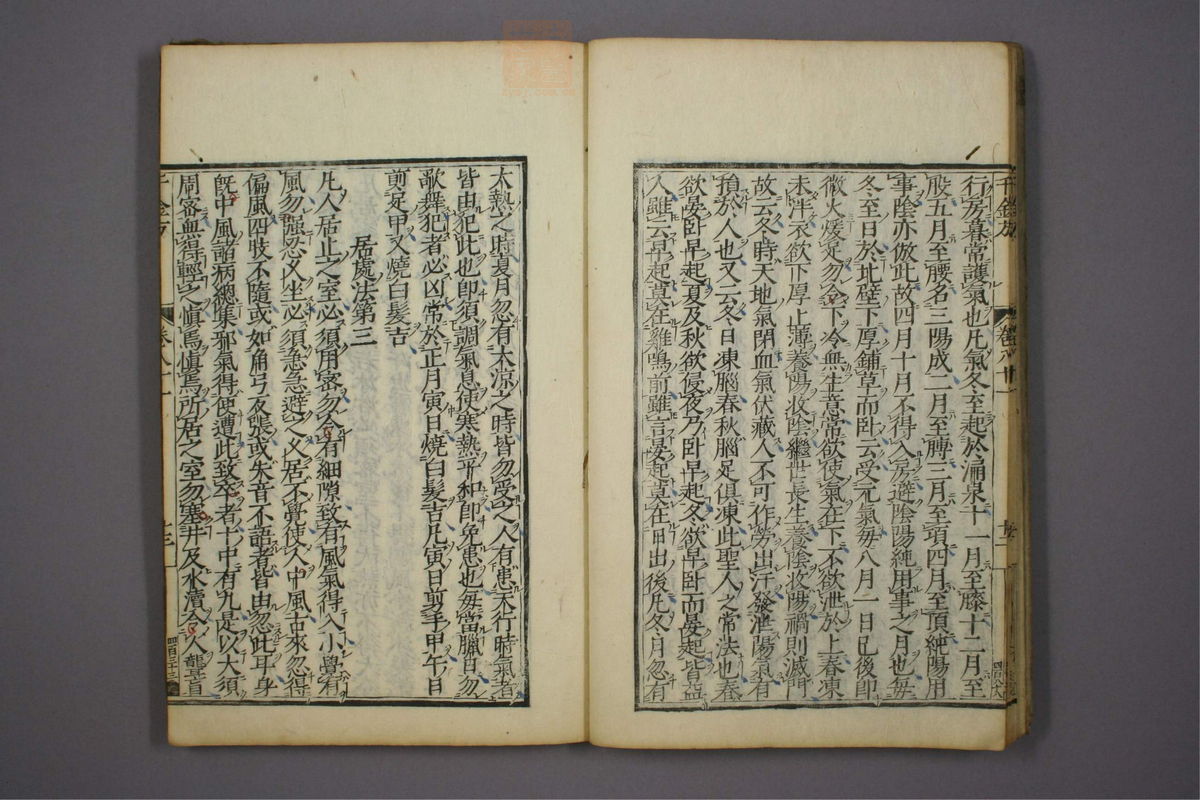 行房暮常護氣也凡氣冬至起於涌泉十一月至膝十二月至
股五月至腰名三陽成二月至膊三月至項四月至頂純陽用
事陰亦倣此故四月十月不得入房避陰陽純用事之月也每
冬至日於北壁下厚鋪草而卧云受元氣每八月一日已後即
微火煖足勿令下冷無生意常欲使氣在下不欲泄於上春凍
未泮衣欲下厚上薄養陽收陰繼世長生養陰收陽禍則滅門
故云冬時天地氣閉血氣伏藏人不可作勞出汗發泄陽氣有
損於人也又云冬日凍腦春秋腦足俱凍此聖人之常法也春
欲晏卧早起夏及秋欲侵夜乃卧早起冬欲早卧而晏起皆益
人雖云早起莫在雞鳴前雖言晏起莫在日出後凡冬月忽有
大熱之時夏月忽有大凉之時皆勿受之人有患天行時氣者
皆由犯此也即須調氣息使寒熱平和即免患也每當臘日勿
歌舞犯者必凶常於正月寅日燒白髮吉凡寅日剪手甲午日
剪足甲又燒白髮吉
居處法第三
凡人居止之室必須周密勿令有細隙致有風氣得入小覺有
風勿強忍久坐必須急急避之久居不覺使人中風古來忽得
偏風四肢不隨或如角弓反張或失音不語者皆由忽此耳身
旣中風諸病總集邪氣得便遭此致卒者十中有九是以大須
周密無得輕之慎焉慎焉所居之室勿塞井及水瀆令人聾盲
千金方
卷八十一
十三